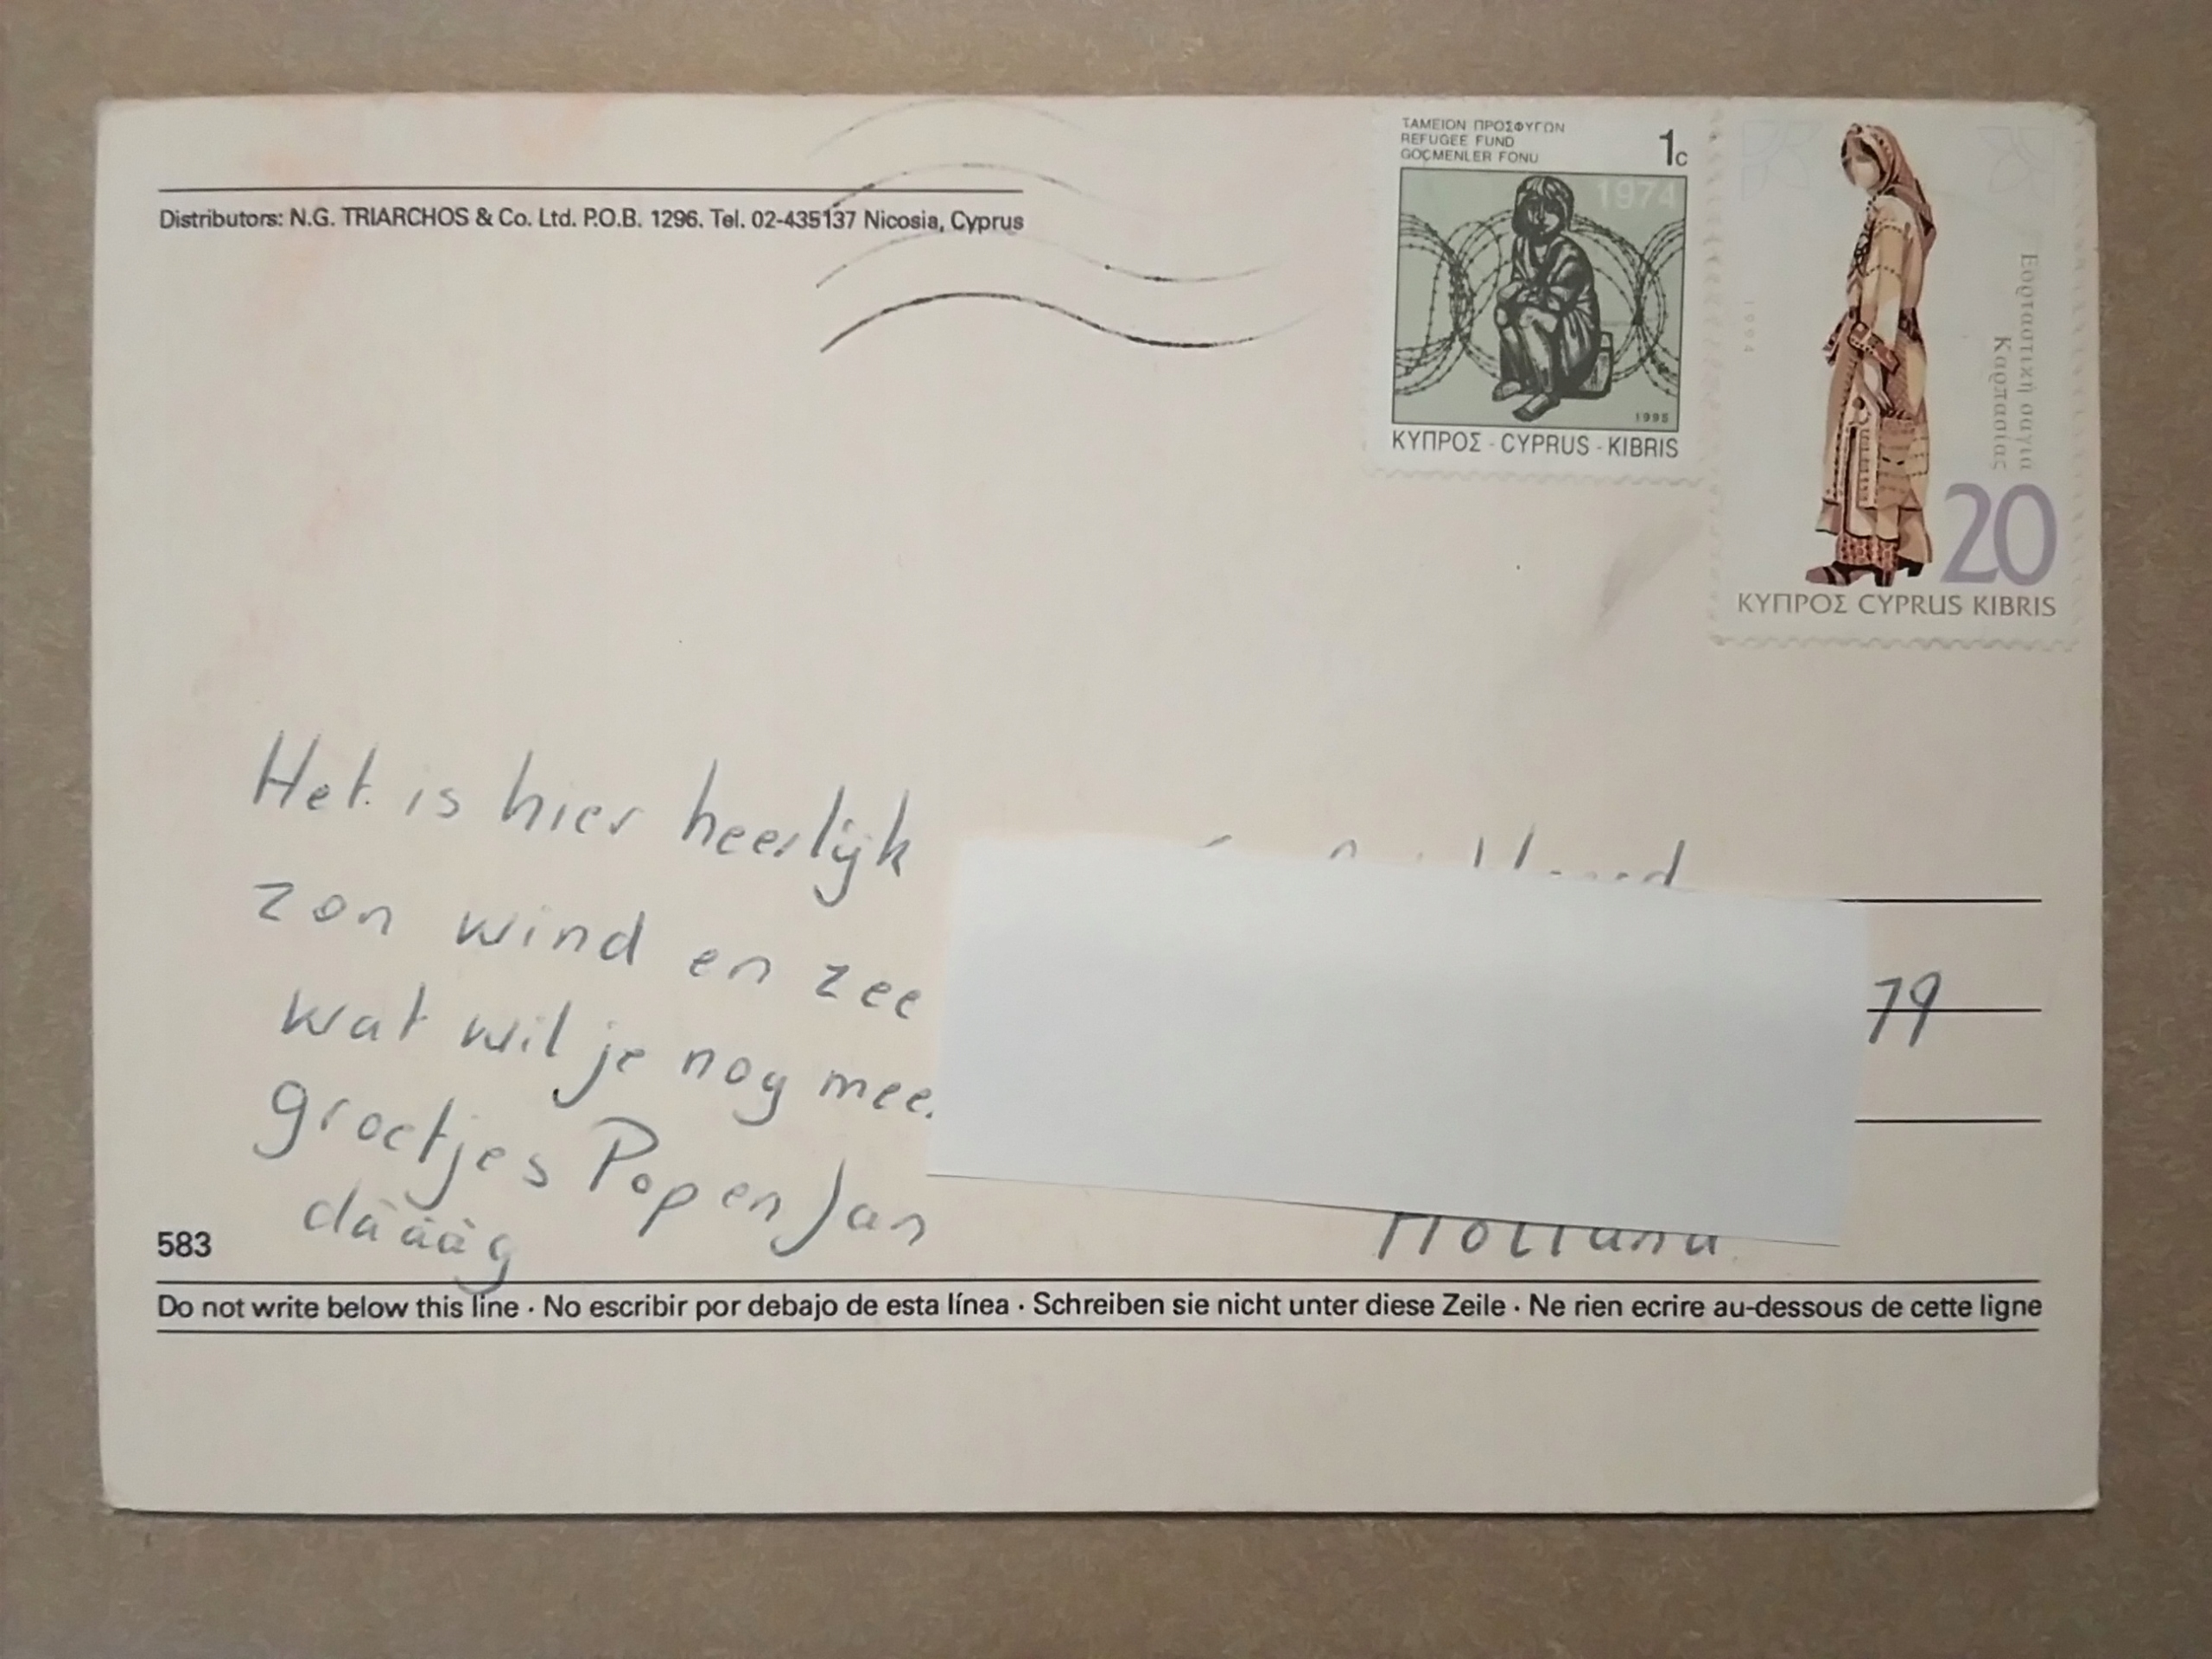 Distributors: N.G. TRIARCHOS & Co. Ltd. P.O.B. 1296. Tel. 02-435137 Nicosia, Cyprus
ΤΑΜΕΙΟΝ ΠΡΟΣΦΥΓΩΝ
REFUGEE FUND
GÖÇMENLER FONU
1c
1974
1995
ΚΥΠΡΟΣ - CYPRUS - KIBRIS
1994
Εορταστική σαγιά
Καρπασίας
20
ΚΥΠΡΟΣ CYPRUS KIBRIS
Het is hier heerlijk
zon wind en zee
wat wil je nog mee.
groetjes Pop en Jan
däääg
79
Holland
583
Do not write below this line · No escribir por debajo de esta línea · Schreiben sie nicht unter diese Zeile · Ne rien ecrire au-dessous de cette ligne